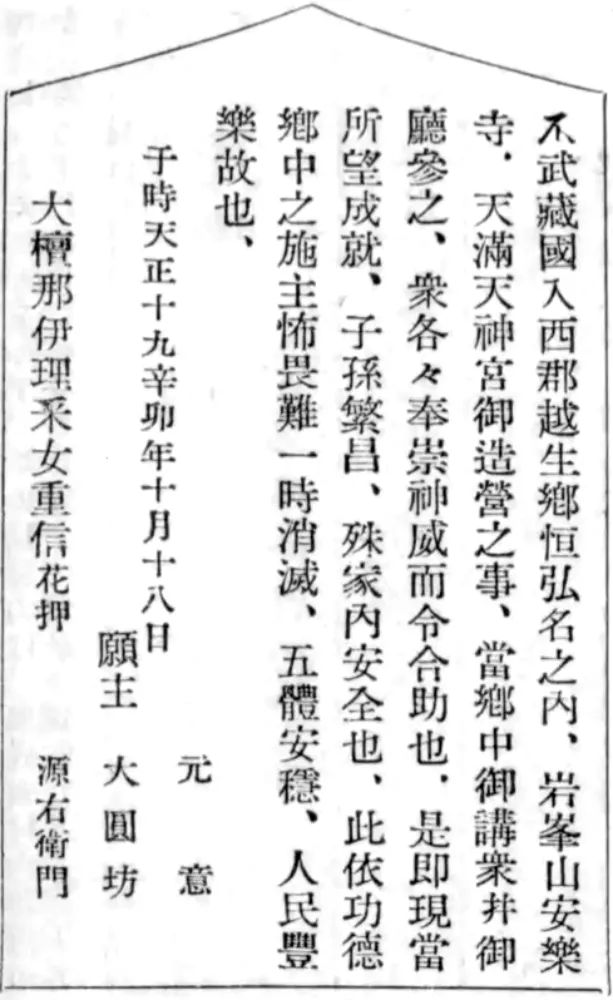 不武藏國入西郡越生鄉恒弘名之內、岩峯山安樂
寺、天滿天神宮御造營之事、當鄉中御講衆幷御
廳參之、衆各々奉崇神威而令合助也、是即現當
所望成就、子孫繁昌、殊家內安全也、此依功德
鄉中之施主怖畏難一時消滅、五體安穩、人民豐
樂故也、
于時天正十九辛卯年十月十八日
元意
願主 大圓坊
大檀那伊理釆女重信花押 源右衛門